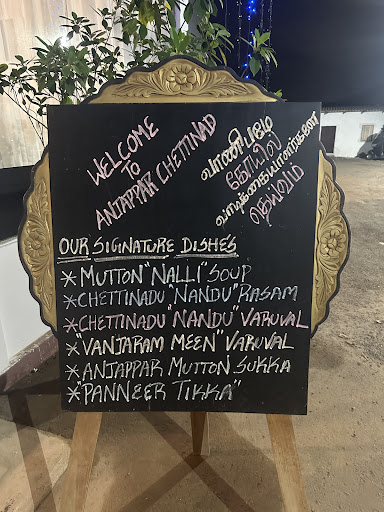 WELCOME
TO
ANJAPPAR CHETTINAD
வாணிபமே
கோயில்
வாடிக்கையாளர்களே
தெய்வம்
OUR SIGNATURE DISHES
* MUTTON "NALLI" SOUP
* CHETTINADU "NANDU" RASAM
* CHETTINADU "NANDU" VARUVAL
* "VANJARAM MEEN" VARUVAL
* ANJAPPAR MUTTON SUKKA
* "PANNEER TIKKA"